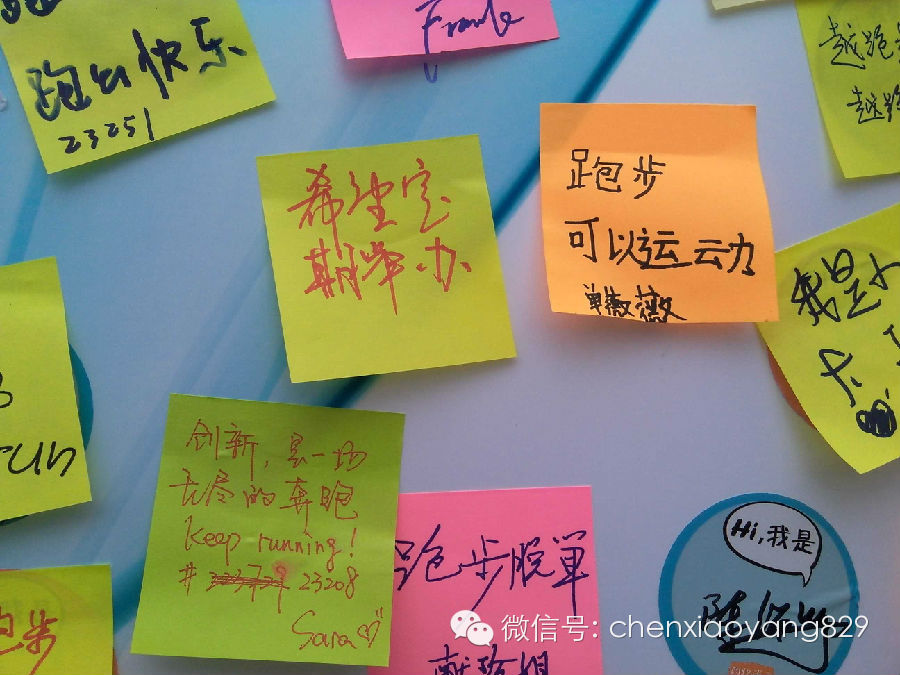 跑出快乐
23251
Frank
越跑
越跑
希望定
期举办
跑步
可以运动
单薇薇
我是小
run
创新,是一场
无尽的奔跑
Keep running!
# 23208
Sara
跑步脱单
跑步
Hi,我是
微信号: chenxiaoyang829